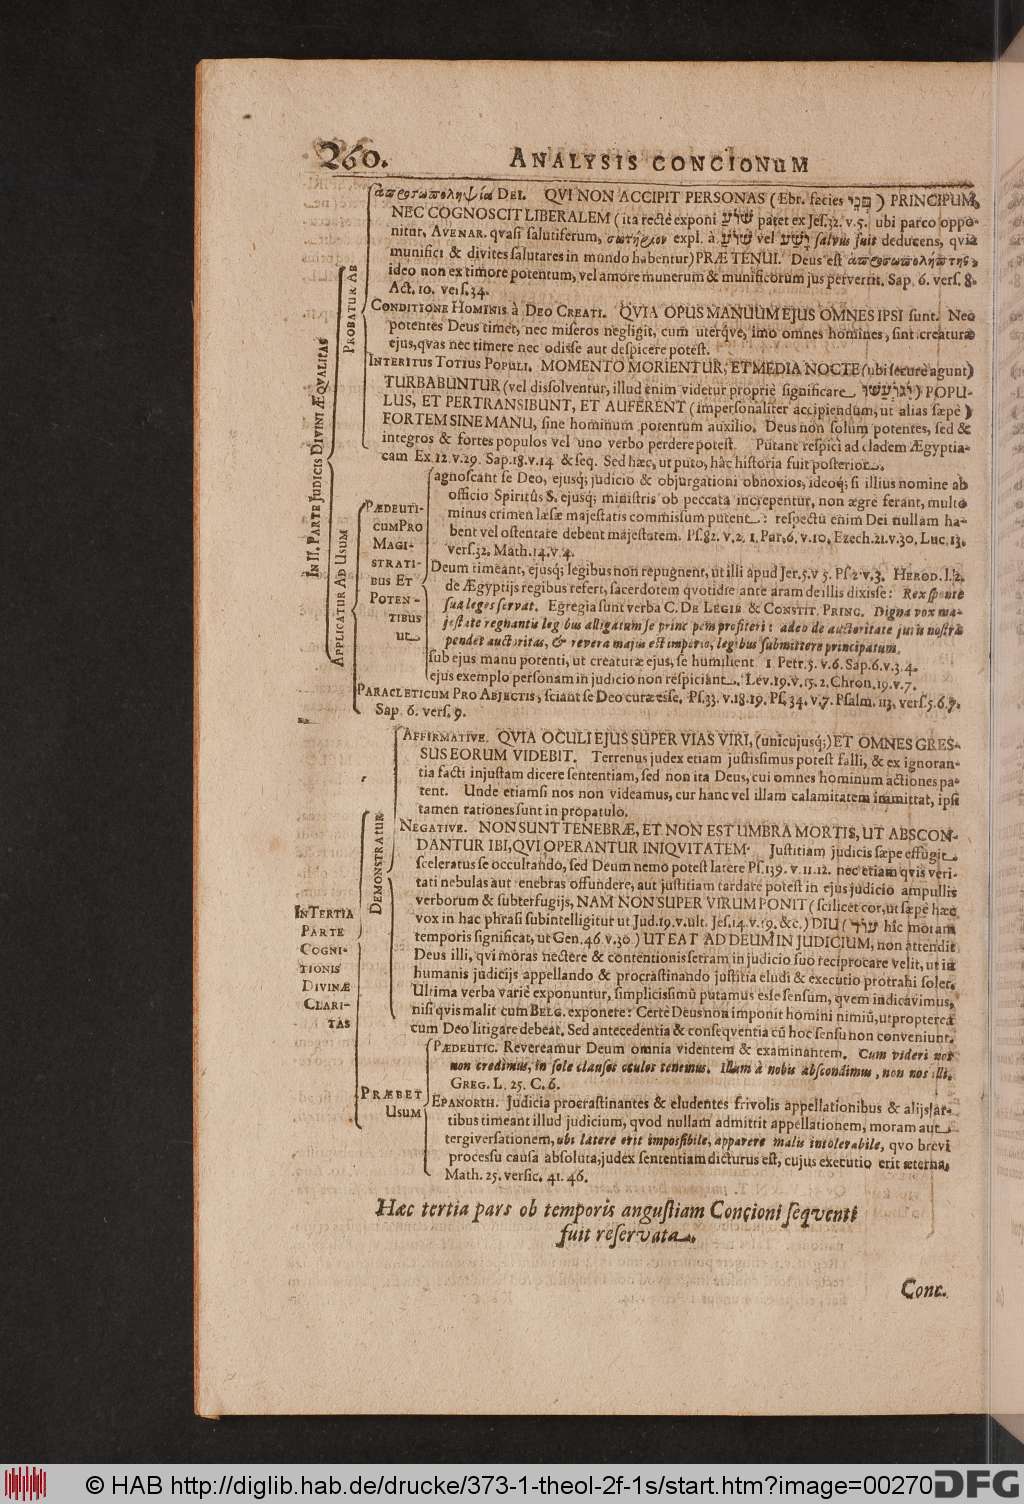 260.
ANALYSIS CONCIONUM
ἀπροσωποληψία DEI. QVI NON ACCIPIT PERSONAS (Ebr. facies פני) PRINCIPUM,
NEC COGNOSCIT LIBERALEM (ita rectè exponi שוע patet ex Jes. 32. v. 5. ubi parco oppo-
nitur, AVENAR. qvasi salutiferum, σωτήριον expl. à שוע vel ישע salvus fuit deducens, qvia
munifici & divites salutares in mundo habentur) PRÆ TENUI. Deus est ἀπροσωπολήπτης,
ideo non ex timore potentum, vel amore munerum & munificorum jus pervertit. Sap. 6. vers. 8.
Act. 10. vers. 34.
CONDITIONE HOMINIS à DEO CREATI. QVIA OPUS MANUUM EJUS OMNES IPSI sunt. Nec
potentes Deus timet, nec miseros negligit, cum uterqve, imo omnes homines, sint creaturæ
ejus, qvas nec timere nec odisse aut despicere potest.
INTERITUS TOTIUS POPULI. MOMENTO MORIENTUR, ET MEDIA NOCTE (ubi securè agunt)
TURBABUNTUR (vel dissolventur, illud enim videtur propriè significare יגעשו) POPU-
LUS, ET PERTRANSIBUNT, ET AUFERENT (impersonaliter accipiendum, ut alias sæpè)
FORTEM SINE MANU, sine hominum potentum auxilio. Deus non solum potentes, sed &
integros & fortes populos vel uno verbo perdere potest. Putant respici ad cladem Ægyptia-
cam Ex. 12. v. 29. Sap. 18. v. 14 & seq. Sed hæc, ut puto, hâc historia fuit posterior.
agnoscant se Deo, ejusq; judicio & objurgationi obnoxios, ideoq; si illius nomine ab
officio Spiritûs S. ejusq; ministris ob peccata increpentur, non ægrè ferant, multò
minus crimen læsæ majestatis commissum putent: respectu enim Dei nullam ha-
bent vel ostentare debent majestatem. Ps. 82. v. 2. 1. Par. 6. v. 10. Ezech. 21. v. 30. Luc. 13.
vers. 32. Math. 14. v. 4.
Deum timeant, ejusq; legibus non repugnent, ut illi apud Jer. 5. v 5. Ps 2 v. 3. HEROD. l. 2.
de Ægyptijs regibus refert, sacerdotem qvotidie ante aram de illis dixisse: Rex sponte
sua leges servat. Egregia sunt verba C. DE LEGIB & CONSTIT. PRINC. Digna vox ma-
jestate regnantis leg bus alligatum se princ pem profiteri: adeo de auctoritate juris nostrà
pendet auctoritas, & revera majus est imperio, legibus submittere principatum.
sub ejus manu potenti, ut creaturæ ejus, se humilient 1. Petr. 5. v. 6. Sap. 6. v. 3. 4.
ejus exemplo personam in judicio non respiciant. Lev. 19. v. 15. 2. Chron. 19. v. 7.
PARACLETICUM PRO ABJECTIS, sciant se Deo curæ esse. Ps. 33. v. 18. 19. Ps. 34. v. 7. Psalm. 113. vers. 5. 6. 7.
Sap. 6. vers. 9.
IN II. PARTE JUDICIS DIVINI ÆQVALITAS
PROBATUR AB
APPLICATUR AD USUM
PÆDEUTI-
CUM PRO
MAGI-
STRATI-
BUS ET
POTEN-
TIBUS
ut
AFFIRMATIVE. QVIA OCULI EJUS SUPER VIAS VIRI, (unicujusq;) ET OMNES GRES-
SUS EORUM VIDEBIT. Terrenus judex etiam justissimus potest falli, & ex ignoran-
tia facti injustam dicere sententiam, sed non ita Deus, cui omnes hominum actiones pa-
tent. Unde etiamsi nos non videamus, cur hanc vel illam calamitatem immittat, ipsi
tamen rationes sunt in propatulo.
NEGATIVE. NON SUNT TENEBRÆ, ET NON EST UMBRA MORTIS, UT ABSCON-
DANTUR IBI, QVI OPERANTUR INIQVITATEM. Justitiam judicis sæpe effugit
sceleratus se occultando, sed Deum nemo potest latere Ps. 139. v. 11. 12. nec etiam qvis veri-
tati nebulas aut tenebras offundere, aut justitiam tardare potest in ejus judicio ampullis
verborum & subterfugijs, NAM NON SUPER VIRUM PONIT (scilicet cor, ut sæpè hæc
vox in hac phrasi subintelligitur ut Jud. 19. v. ult. Jes. 14. v. 19. &c.) DIU (עוד hîc moram
temporis significat, ut Gen. 46. v. 30.) UT EAT AD DEUM IN JUDICIUM, non attendit
Deus illi, qvi moras nectere & contentionis serram in judicio suo reciprocare velit, ut in
humanis judicijs appellando & procrastinando justitia eludi & executio protrahi solet.
Ultima verba variè exponuntur, simplicissimũ putamus esse sensum, qvem indicavimus,
nisi qvis malit cum BELG. exponere: Certè Deus non imponit homini nimiũ, ut proptereà
cum Deo litigare debeat. Sed antecedentia & conseqventia cũ hoc sensu non conveniunt.
PÆDEUTIC. Revereamur Deum omnia videntem & examinantem. Cum videri nos
non credimus, in sole clausos oculos tenemus. Illum à nobis abscondimus, non nos illi.
GREG. L. 25. C. 6.
EPANORTH. Judicia procrastinantes & eludentes frivolis appellationibus & alijs ar-
tibus timeant illud judicium, qvod nullam admittit appellationem, moram aut
tergiversationem, ubi latere erit impossibile, apparere malis intolerabile, qvo brevi
processu causa absoluta, judex sententiam dicturus est, cujus executio erit æterna.
Math. 25. versic. 41. 46.
IN TERTIA
PARTE
COGNI-
TIONIS
DIVINÆ
CLARI-
TAS
DEMONSTRATUR
PRÆBET
USUM
Hæc tertia pars ob temporis angustiam Concioni seqventi
fuit reservata.
Conc.
© HAB http://diglib.hab.de/drucke/373-1-theol-2f-1s/start.htm?image=00270
DFG